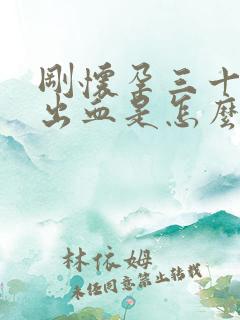 剛懷孕三十
出血是怎麼
林依姆
未經同意禁止轉載